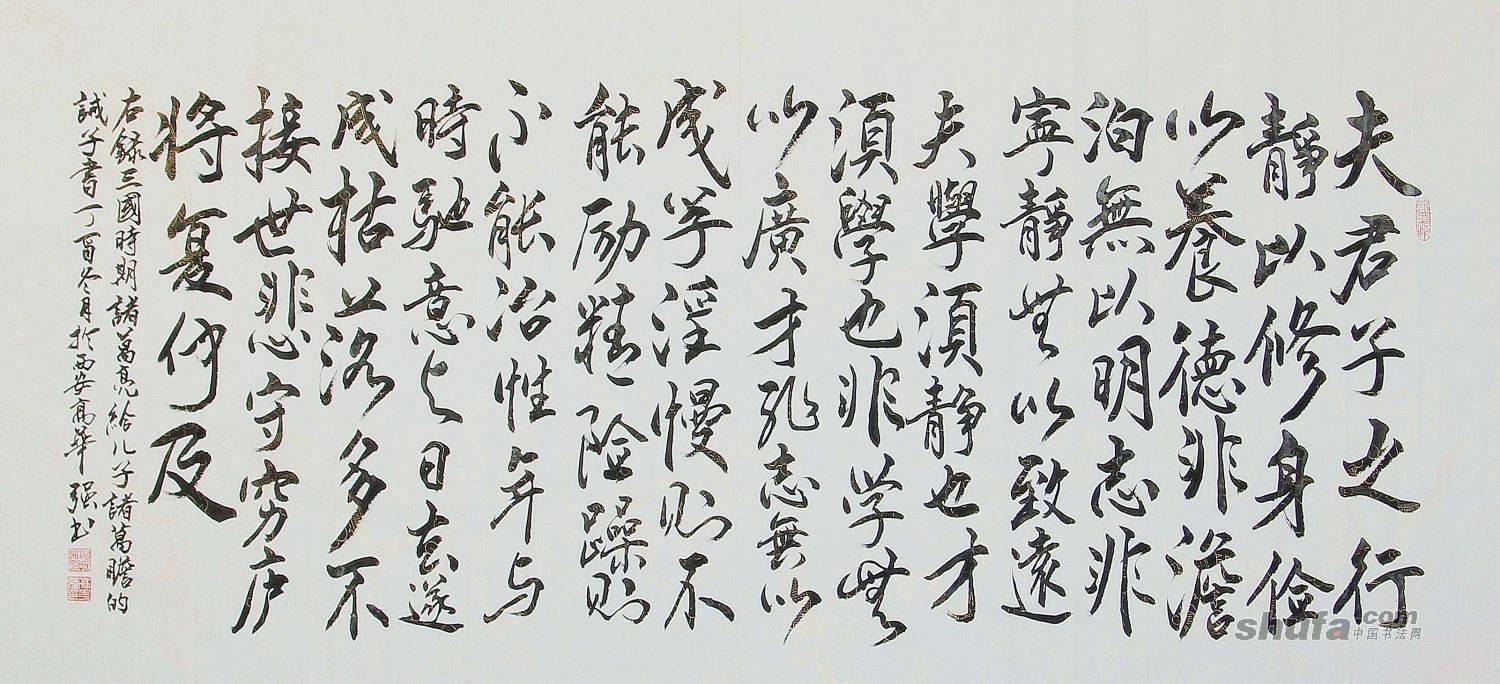 夫君子之行
靜以修身儉
以養德非澹
泊無以明志非
寧靜無以致遠
夫學須靜也才
須學也非学無
以廣才非志無以
成学淫慢则不
能励精险躁则
不能冶性年与
時馳意与日去遂
成枯落多不
接世悲守穷庐
将复何及
右録三國時期諸葛亮給儿子諸葛瞻的
誡子書丁酉冬月於西安高華强书
shufa.com
中国书法网